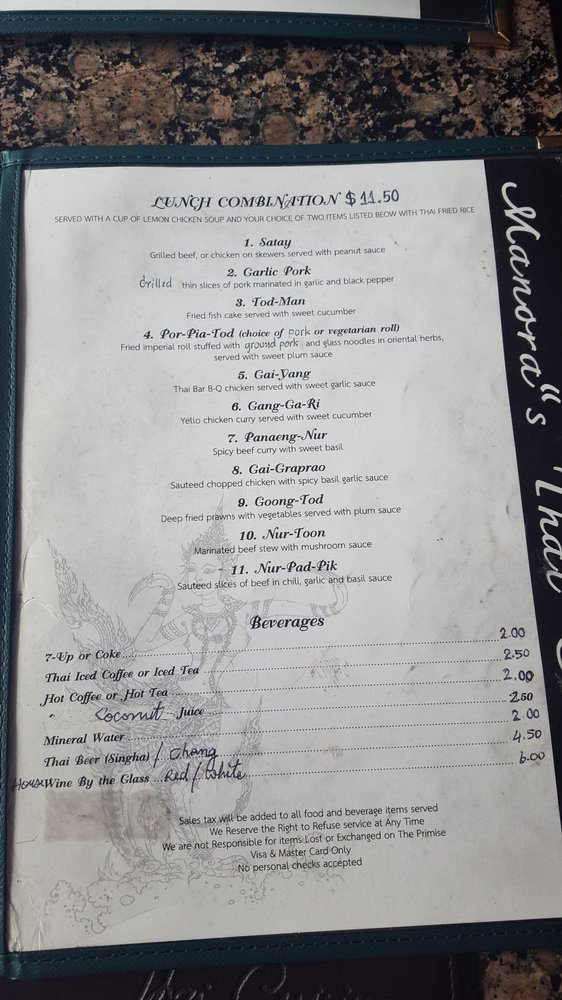 LUNCH COMBINATION $ 11.50
SERVED WITH A CUP OF LEMON CHICKEN SOUP AND YOUR CHOICE OF TWO ITEMS LISTED BEOW WITH THAI FRIED RICE
1. Satay
Grilled beef, or chicken on skewers served with peanut sauce
2. Garlic Pork
Grilled thin slices of pork marinated in garlic and black pepper
3. Tod-Man
Fried fish cake served with sweet cucumber
4. Por-Pia-Tod (choice of pork or vegetarian roll)
Fried imperial roll stuffed with ground pork and glass noodles in oriental herbs,
served with sweet plum sauce
5. Gai-Yang
Thai Bar B-Q chicken served with sweet garlic sauce
6. Gang-Ga-Ri
Yello chicken curry served with sweet cucumber
7. Panaeng-Nur
Spicy beef curry with sweet basil
8. Gai-Graprao
Sauteed chopped chicken with spicy basil garlic sauce
9. Goong-Tod
Deep fried prawns with vegetables served with plum sauce
10. Nur-Toon
Marinated beef stew with mushroom sauce
11. Nur-Pad-Pik
Sauteed slices of beef in chili, garlic and basil sauce
Beverages
7-Up or Coke 2.00
Thai Iced Coffee or Iced Tea 2.50
Hot Coffee or Hot Tea 2.00
Coconut Juice 2.50
Mineral Water 2.00
Thai Beer (Singha) / Chang 4.50
House Wine By the Glass Red / White 6.00
Sales tax will be added to all food and beverage items served
We Reserve the Right to Refuse service at Any Time
We are not Responsible for items Lost or Exchanged on The Primise
Visa & Master Card Only
No personal checks accepted
Manora"s Thai
Thai Cuisine